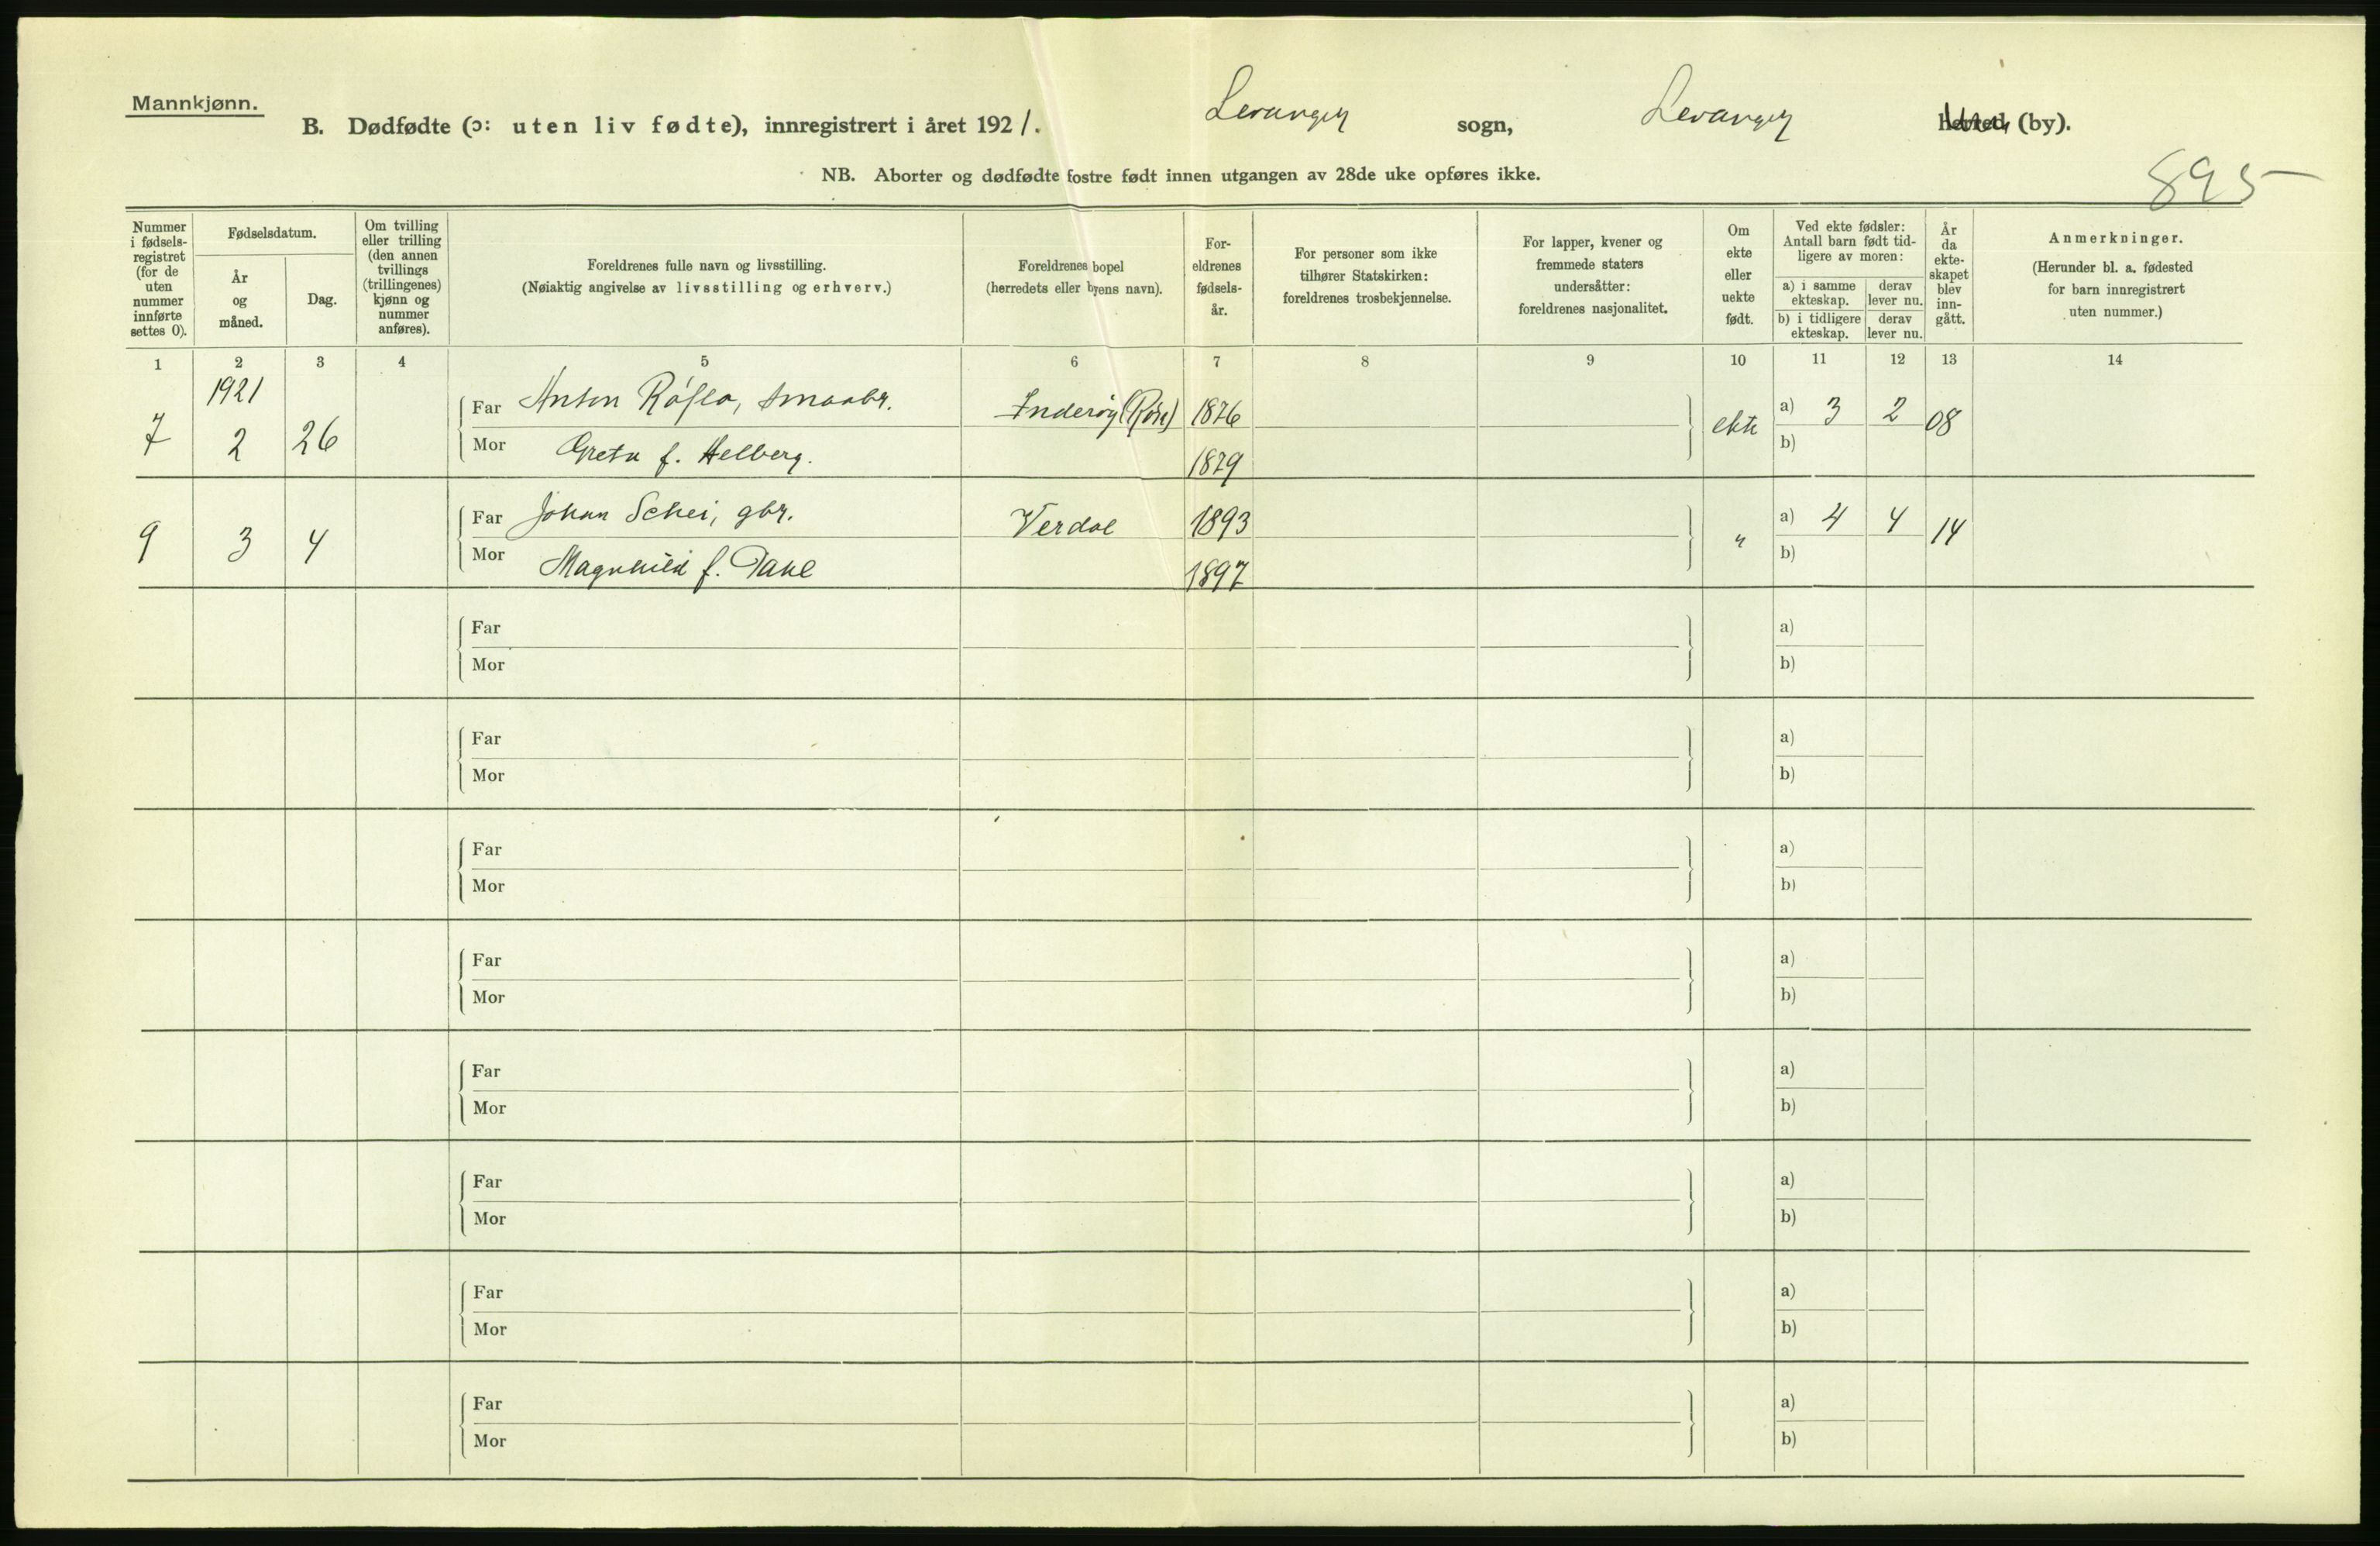 Mannkjønn.
B. Dødfødte (ɔ: uten liv fødte), innregistrert i året 1921. Levanger sogn, Levanger herred (by).
NB. Aborter og dødfødte fostre født innen utgangen av 28de uke opføres ikke.
895
Nummer i fødsels-registret (for de uten nummer innførte settes 0).
Fødselsdatum.
År og måned.
Dag.
Om tvilling eller trilling (den annen tvillings (trillingenes) kjønn og nummer anføres).
Foreldrenes fulle navn og livsstilling.
(Nøiaktig angivelse av livsstilling og erhverv.)
Foreldrenes bopel
(herredets eller byens navn).
For-eldrenes fødsels-år.
For personer som ikke tilhører Statskirken: foreldrenes trosbekjennelse.
For lapper, kvener og fremmede staters undersåtter: foreldrenes nasjonalitet.
Om ekte eller uekte født.
Ved ekte fødsler: Antall barn født tid-ligere av moren:
a) i samme ekteskap. derav lever nu.
b) i tidligere ekteskap. derav lever nu.
År da ekte-skapet blev inn-gått.
Anmerkninger.
(Herunder bl. a. fødested for barn innregistrert uten nummer.)
1 2 3 4 5 6 7 8 9 10 11 12 13 14
1921
7 2 26 Far Anton Røflo, smaabr. Inderøy 1876 ekte a) 3 2 08
Mor Greta f. Helberg. 1879 b)
9 3 4 Far Johan Schei, gbr. Verdal 1893 " a) 4 4 14
Mor Magnhild f. Dahl 1897 b)
Far a)
Mor b)
Far a)
Mor b)
Far a)
Mor b)
Far a)
Mor b)
Far a)
Mor b)
Far a)
Mor b)
Far a)
Mor b)
Far a)
Mor b)